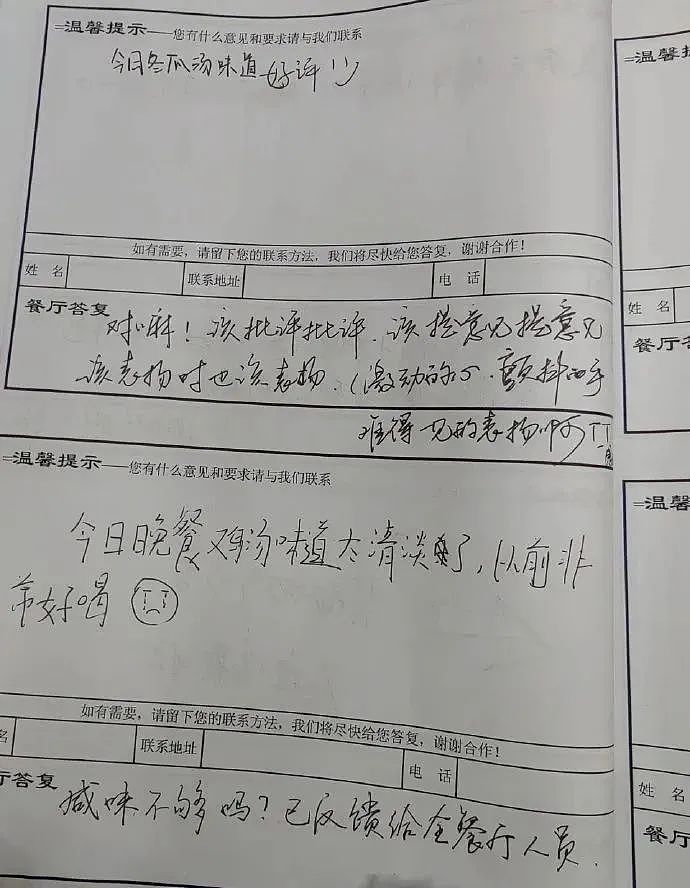 =温馨提示——您有什么意见和要求请与我们联系
今日冬瓜汤味道好评!!
如有需要，请留下您的联系方法，我们将尽快给您答复，谢谢合作！
姓 名 联系地址 电 话
餐厅答复
对嘛！该批评批评.该提意见提意见
该表扬时也该表扬.(激动的心.颤抖的手
难得一见的表扬啊TT
=温馨提示——您有什么意见和要求请与我们联系
今日晚餐鸡汤味道太清淡了，以前非
常好喝
如有需要，请留下您的联系方法，我们将尽快给您答复，谢谢合作！
名 联系地址 电 话
厅答复
咸味不够吗？已反馈给全餐厅人员.
=温馨提
姓 名
餐厅答
=温馨
姓 名
餐厅